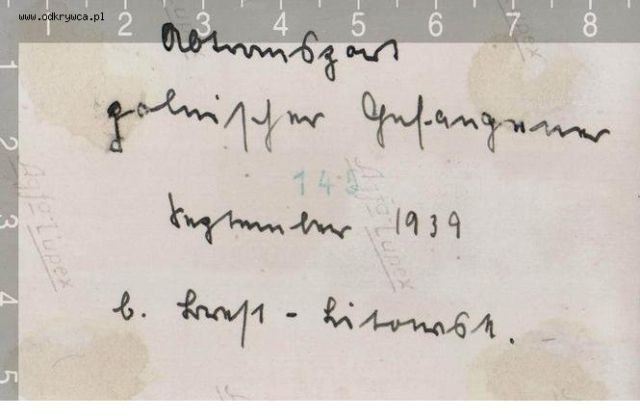 www.odkrywca.pl
1 2 3 4 5 6 7 8
Abtransport
polnischer Gefangener
145
September 1939
b. Brest - Litowsk.
Agfa-Lupex
Agfa-Lupex
1
2
3
4
5